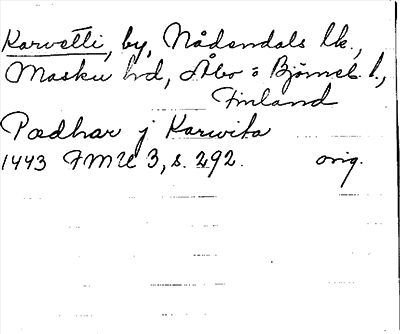 Karvetti, by, Nådendals lk.,
Masku hd, Åbo o Björneb. l.,
Finland
Pædhar j Karwita
1443 FMU 3, s. 292. orig.